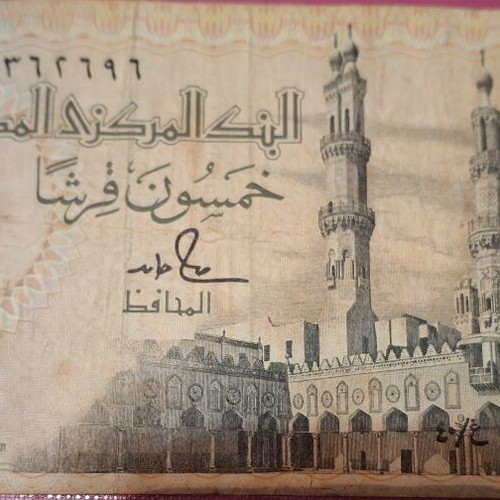 ٣٦٢٦٩٦
البنك المركزى المص
خمسون قرشًا
صلاح حامد
المحافظ